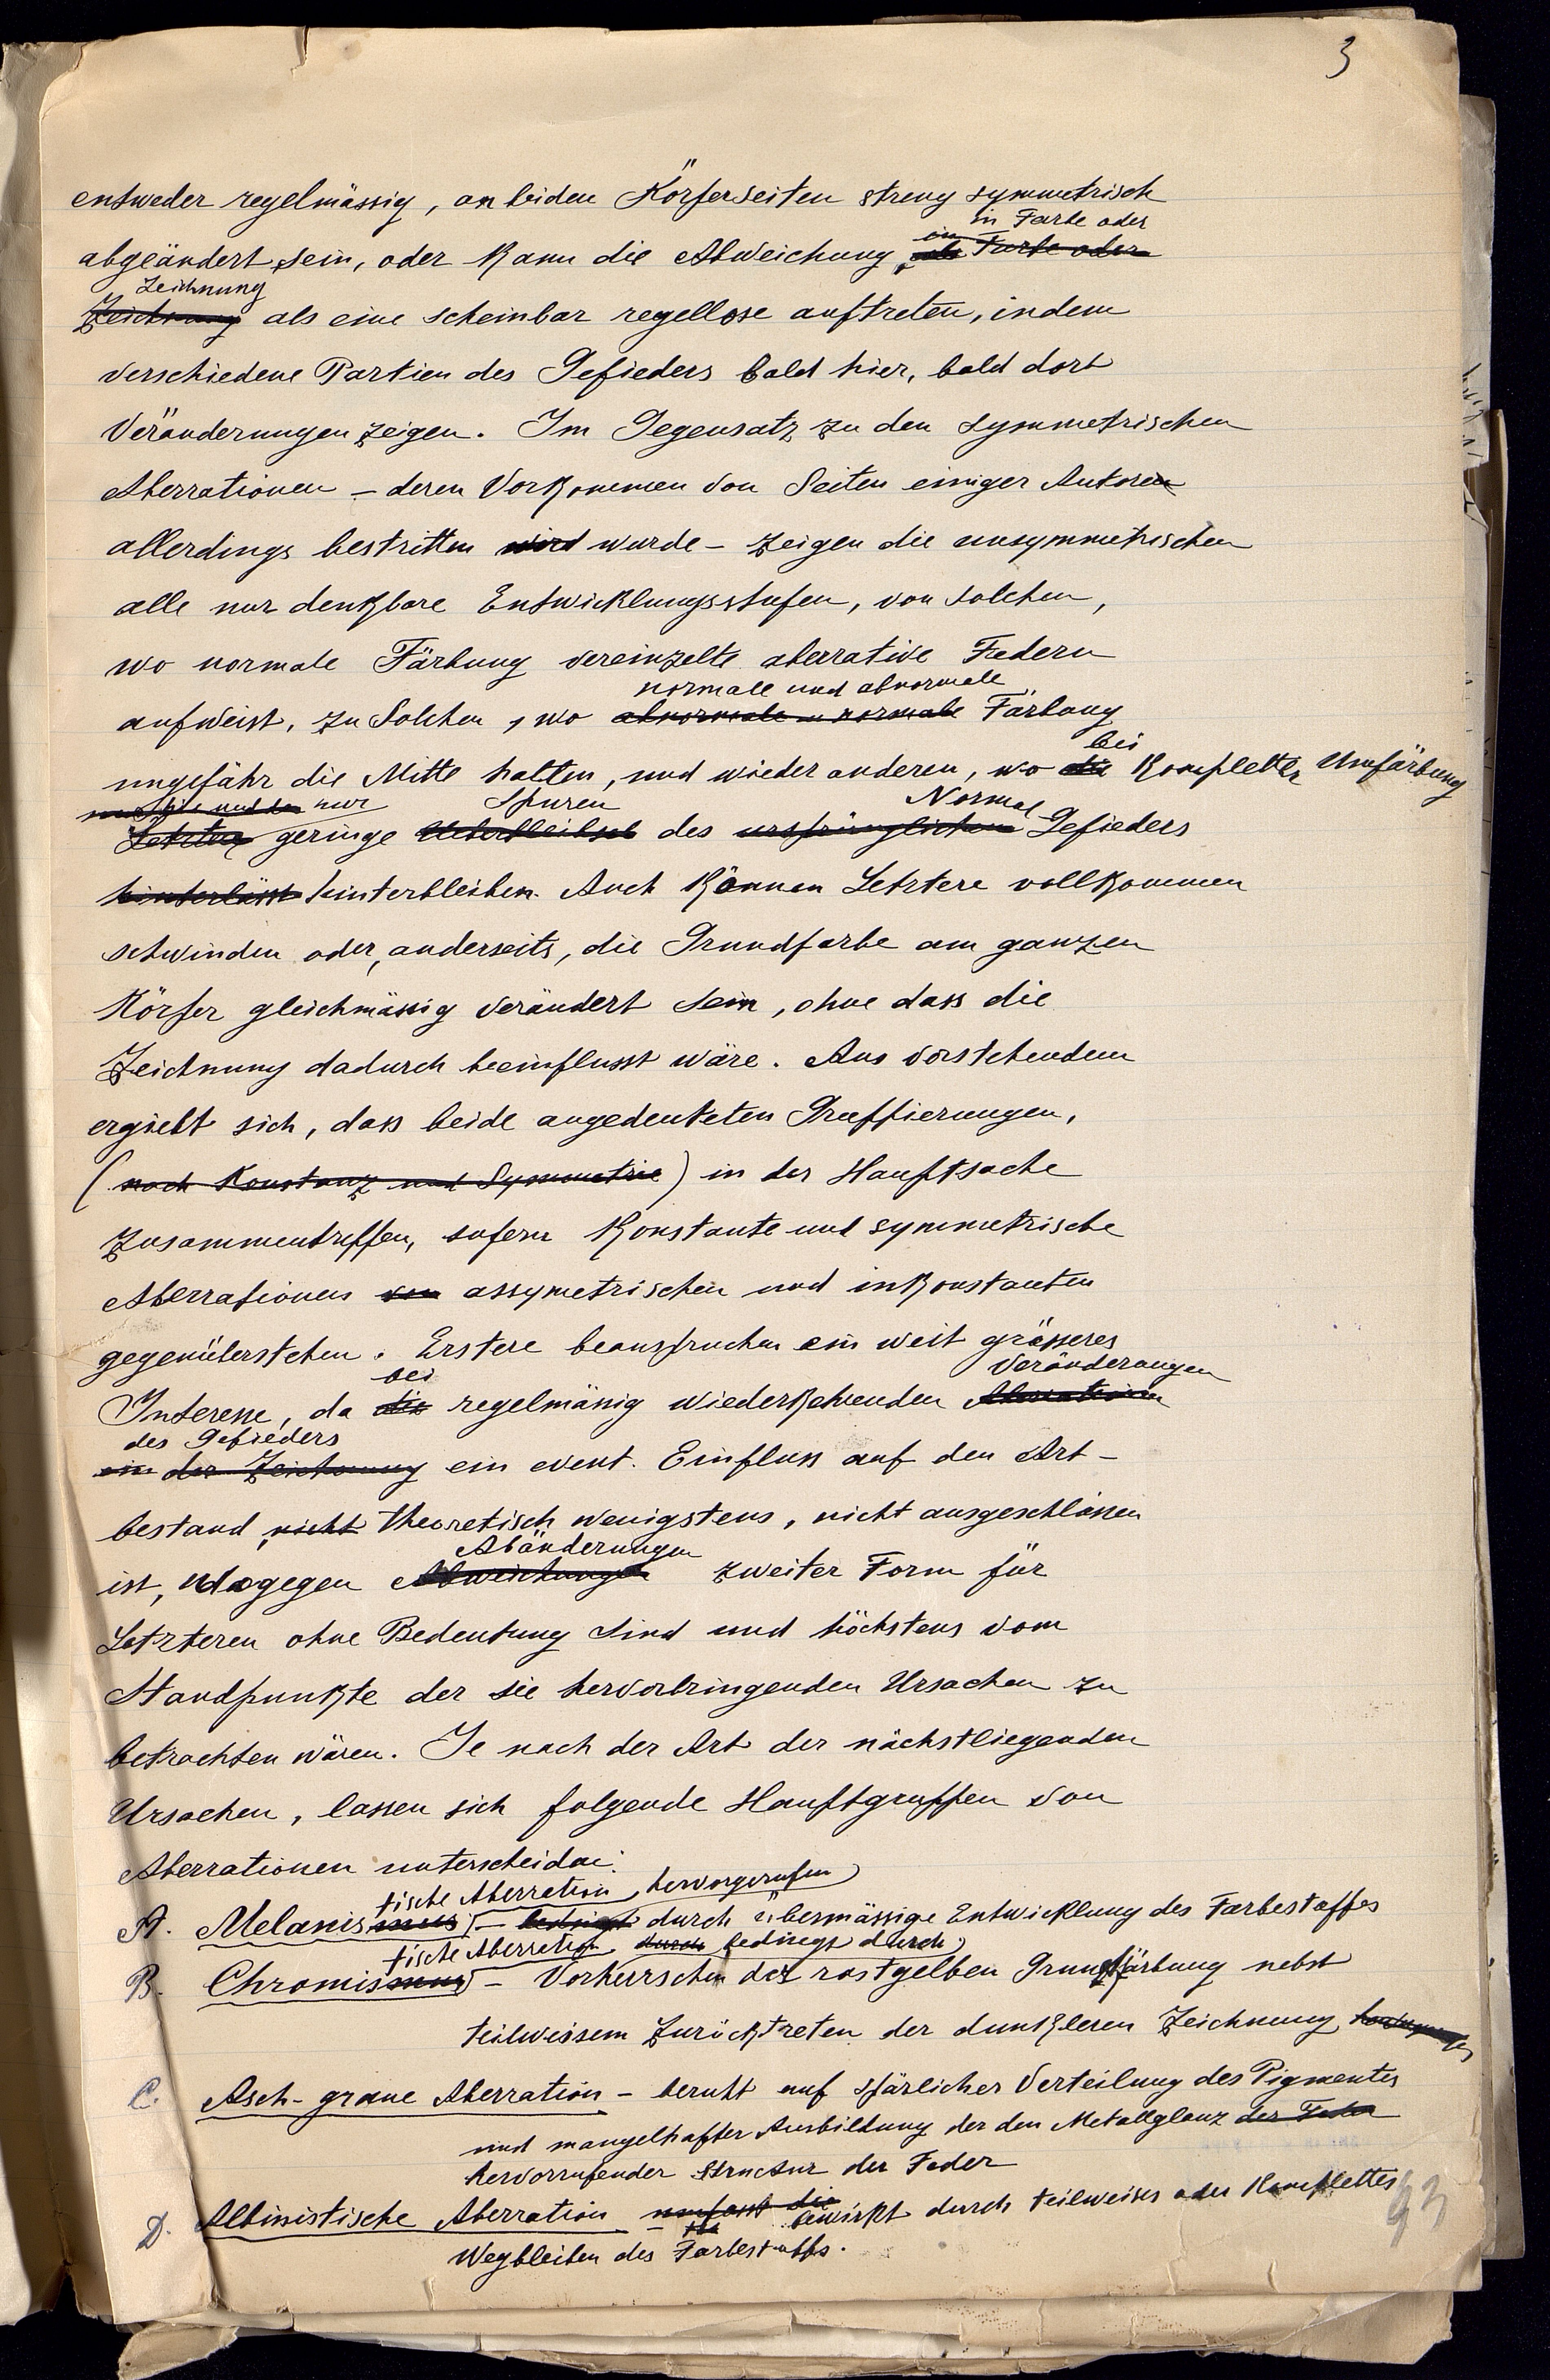 3
entweder regelmässig, an beiden Körperseiten streng symmetrisch
in Farbe oder
abgeändert sein, oder kann die Abweichung in Farbe oder
Zeichnung
Zeichnung als eine scheinbar regellose auftreten, indem
verschiedene Partien des Gefieders bald hier, bald dort
Veränderungen zeigen. Im Gegensatz zu den symmetrischen
Aberrationen – deren Vorkommen von Seiten einiger Autoren
allerdings bestritten wird wurde – zeigen die unsymmetrischen
alle nur denkbare Entwicklungsstufen, von solchen,
wo normale Färbung vereinzelte aberrative Federn
normale und abnormale
aufweist, zu Solchen, wo abnormale u normale Färbung
bei
ungefähr die Mitte halten, und wieder anderen, wo die kompletter Umfärbung
nur Spuren Normal-
Letztere geringe Ueberbleibsel des ursprünglichen Gefieders
hinterlässt hinterbleiben. Auch können Letztere vollkommen
schwinden oder, anderseits, die Grundfarbe am ganzen
Körper gleichmässig verändert sein, ohne dass die
Zeichnung dadurch beeinflusst wäre. Aus vorstehendem
ergiebt sich, dass beide angedeuteten Gruppierungen,
(nach Konstanz und Symmetrie) in der Hauptsache
zusammentreffen, sofern konstante und symmetrische
Aberrationen von assymetrischen und inkonstanten
gegenüberstehen. Erstere beanspruchen ein weit grösseres
bei Veränderungen
Interesse, da die regelmässig wiederkehrenden Aberrationen
des Gefieders
in der Zeichnung ein event. Einfluss auf den Art-
bestand, nicht theoretisch wenigstens, nicht ausgeschlossen
Abänderungen
ist, wogegen Abweichungen zweiter Form für
Letzteren ohne Bedeutung sind und höchstens vom
Standpunkte der sie hervorbringenden Ursachen zu
betrachten wären. Je nach der Art der nächstliegenden
Ursachen, lassen sich folgende Hauptgruppen von
Aberrationen unterscheiden:
tische Aberration, hervorgerufen
A. Melanismus – bedingt durch übermässige Entwicklung des Farbestoffes
tische Aberration durch bedingt durch
B. Chromismus – Vorherrschen der rostgelben Grundfärbung nebst
teilweisem Zurücktreten der dunkleren Zeichnung
C. Asch-graue Aberration – beruht auf spärlicher Verteilung des Pigmentes
und mangelhafter Ausbildung der den Metallglanz der Feder
hervorrufender Structur der Feder
D. Albinistische Aberration umfasst die bewirkt durch teilweises oder komplettes
Wegbleiben des Farbestoffs.
93